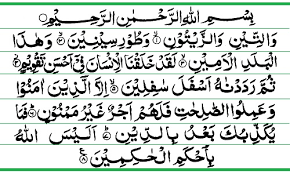 بِسْمِ اللهِ الرَّحْمٰنِ الرَّحِيْمِ
وَالتِّيْنِ وَالزَّيْتُوْنِ ۙ۱ وَطُوْرِ سِيْنِيْنَ ۙ۲ وَهٰذَا
الْبَلَدِ الْاَمِيْنِ ۙ۳ لَقَدْ خَلَقْنَا الْاِنْسَانَ فِيْ اَحْسَنِ تَقْوِيْمٍ ۴
ثُمَّ رَدَدْنٰهُ اَسْفَلَ سٰفِلِيْنَ ۙ۵ اِلَّا الَّذِيْنَ اٰمَنُوْا
وَعَمِلُوا الصّٰلِحٰتِ فَلَهُمْ اَجْرٌ غَيْرُ مَمْنُوْنٍ ۶ فَمَا
يُكَذِّبُكَ بَعْدُ بِالدِّيْنِ ۷ اَلَيْسَ اللهُ
بِاَحْكَمِ الْحٰكِمِيْنَ ۸